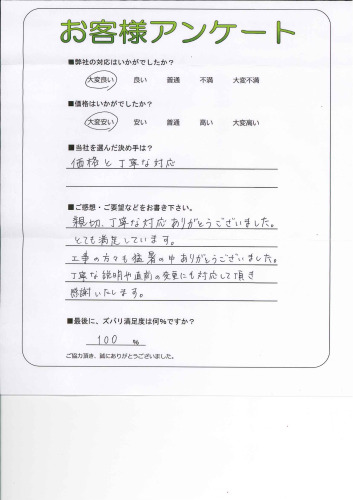 お客様アンケート
■弊社の対応はいかがでしたか？
大変良い 良い 普通 不満 大変不満
■価格はいかがでしたか？
大変安い 安い 普通 高い 大変高い
■当社を選んだ決め手は？
価格と丁寧な対応
■ご感想・ご要望などをお書き下さい。
親切、丁寧な対応ありがとうございました。
とても満足しています。
工事の方々も猛暑の中ありがとうございました。
丁寧な説明や直前の変更にも対応して頂き
感謝いたします。
■最後に、ズバリ満足度は何%ですか？
100 %
ご協力頂き、誠にありがとうございました。